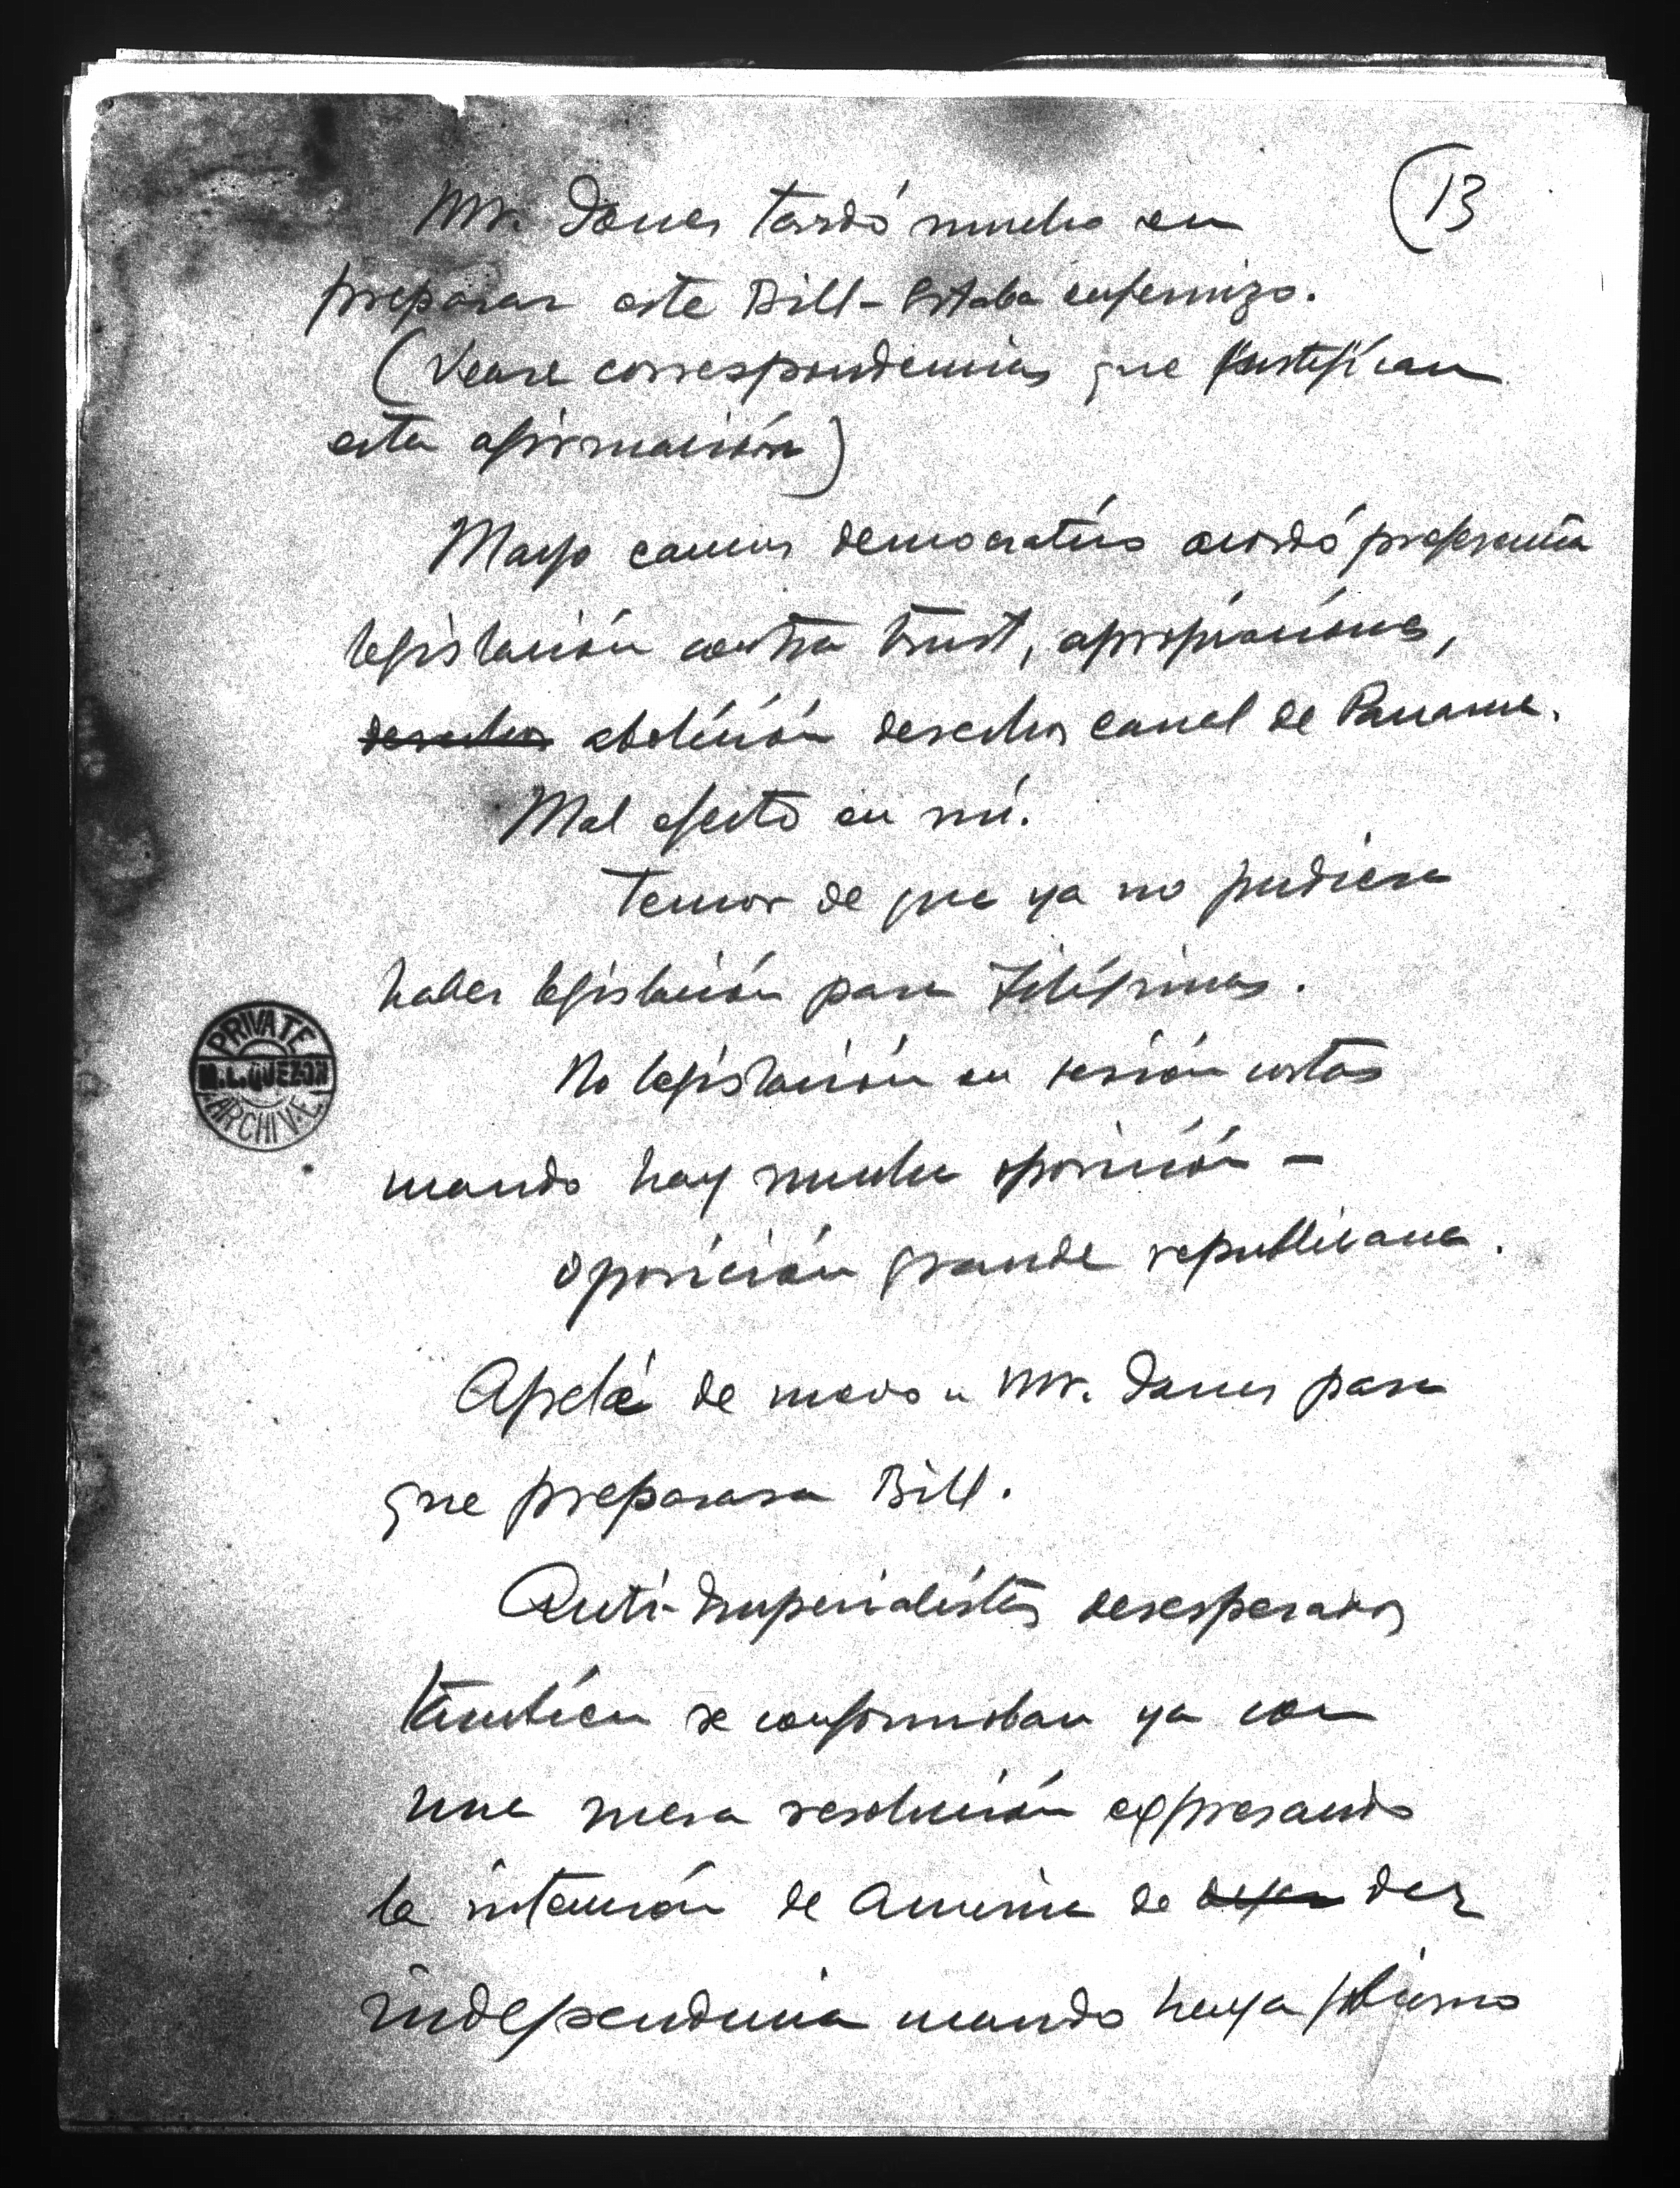 (13
Mr. Jones tardó mucho en
preparar este Bill - Estaba enfermizo.
(Vease correspondencias que justifican
esta afirmación)
Mayo caucus democratico acordó preferencia
legislación contra trust, apropiaciónes,
derechos abolición derechos canal de Panama.
Mal efecto en mí.
Temor de que ya no pudiera
haber legislación para Filipinas.
No legislación en sesión cortas
cuando hay mucha oposición -
oposición grande republicana.
Apelé de nuevo a Mr. Jones para
que preparara Bill.
Anti-Imperialistas desesperados
también se conformaban ya con
una mera resolución expresando
la intención de America de dejar dar
independencia cuando haya gobierno
PRIVATE
M.L. QUEZON
ARCHIVE